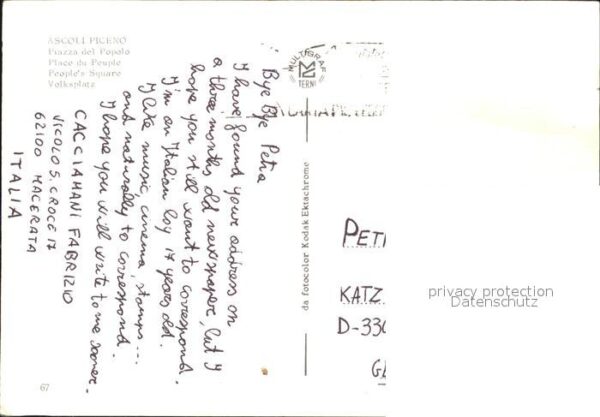 ASCOLI PICENO
Piazza del Popolo
Place du Peuple
People's Square
Volksplatz
Bye Bye Petra
I have found your address on
a three months old newspaper, but I
hope you still want to correspond.
I'm an Italian boy 17 years old.
I like music, cinema, stamps...
and naturally to correspond.
I hope you will write to me sooner.
CACCIAMANI FABRIZIO
VICOLO S. CROCE 17
62100 MACERATA
ITALIA
67
MULTIGRAF
TERNI
da fotocolor Kodak Ektachrome
PET
KATZ
D-330
privacy protection
Datenschutz